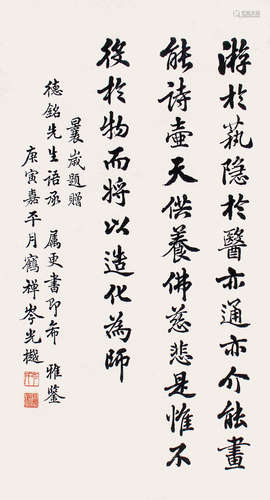 游於蓺隐於醫亦通亦介能畫
能詩壺天供養佛慈悲是惟不
役於物而將以造化為師
曩歲題贈
德銘先生語承 属更書即希 雅鑒
庚寅嘉平月鶴禅岑光樾